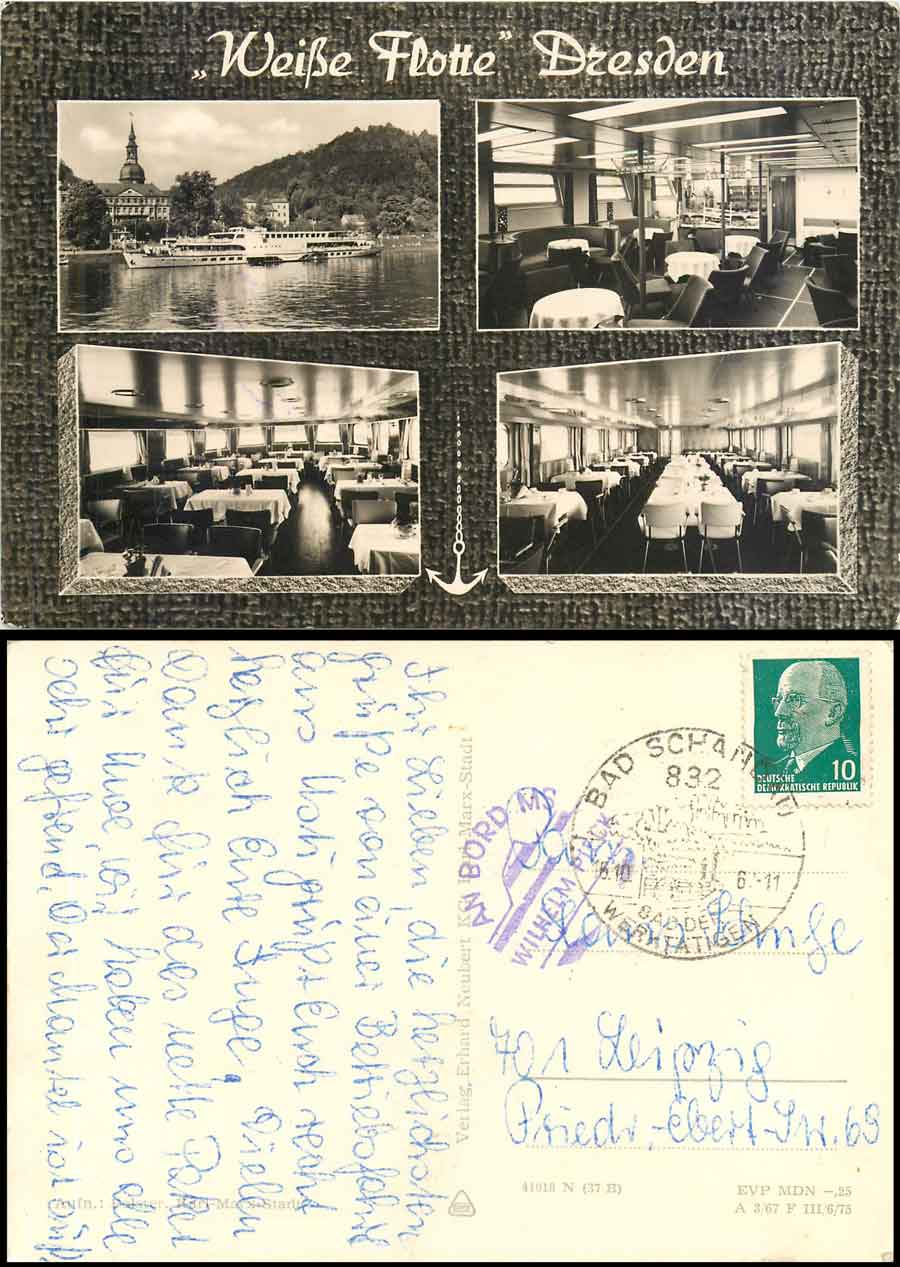 „Weiße Flotte" Dresden
Ihr Lieben, die herzlichsten
Grüße von einer Betriebsfahrt
aus
herzlich Eure Inge. Vielen
Dank für das nette Paket
für Uwe, wir haben uns alle
sehr gefreut. Der Mantel ist süß.
Verlag, Erhard Neubert KG, Karl-Marx-Stadt
AN BORD MS
WILHELM PIECK
BAD SCHANDAU
832
6.-11
BAD DER
WERKTÄTIGEN
10
DEUTSCHE
DEMOKRATISCHE REPUBLIK
Fam.
701 Leipzig
Friedr.-Ebert-Str. 69
Aufn.: Karl-Marx-Stadt
41018 N (37 B)
EVP MDN –,25
A 3/67 F III/6/75